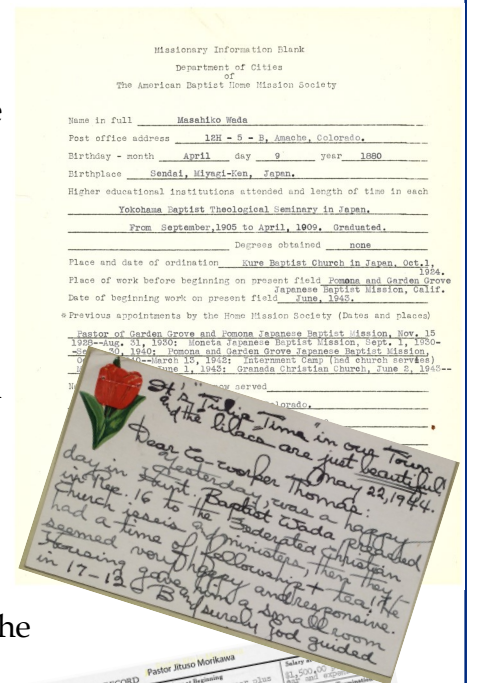 Missionary Information Blank
Department of Cities
of
The American Baptist Home Mission Society
Name in full Masahiko Wada
Post office address 12H - 5 - B, Amache, Colorado.
Birthday - month April day 9 year 1880
Birthplace Sendai, Miyagi-Ken, Japan.
Higher educational institutions attended and length of time in each
Yokohama Baptist Theological Seminary in Japan.
From September,1905 to April, 1909. Graduated.
Degrees obtained none
Place and date of ordination Kure Baptist Church in Japan, Oct.1,
1924.
Place of work before beginning on present field Pomona and Garden Grove
Japanese Baptist Mission, Calif.
Date of beginning work on present field June, 1943.
Previous appointments by the Home Mission Society (Dates and places)
Pastor of Garden Grove and Pomona Japanese Baptist Mission, Nov. 15
1928--Aug. 31, 1930: Moneta Japanese Baptist Mission, Sept. 1, 1930-
30, 1940: Pomona and Garden Grove Japanese Baptist Mission,
--March 13, 1942: Internment Camp (had church servies)
June 1, 1943: Grenada Christian Church, June 2, 1943--
now served
Colorado.
It's "Tulip Time" in our Town
and the lilacs are just beautiful
May 22, 1944.
Dear Co-worker Thomas:
Yesterday was a happy
day in Hunt. Baptist Wada preached
in Rec. 16 to the Federated Christian
Church isseis & ministers, then they
had a time of fellowship & tea! He
seemed very happy and responsive.
Housing gave him a small room
in 17-12 B surely God guided
he
RECORD Pastor Jituso Morikawa
Beginning
plus
Salary
$1,500.00